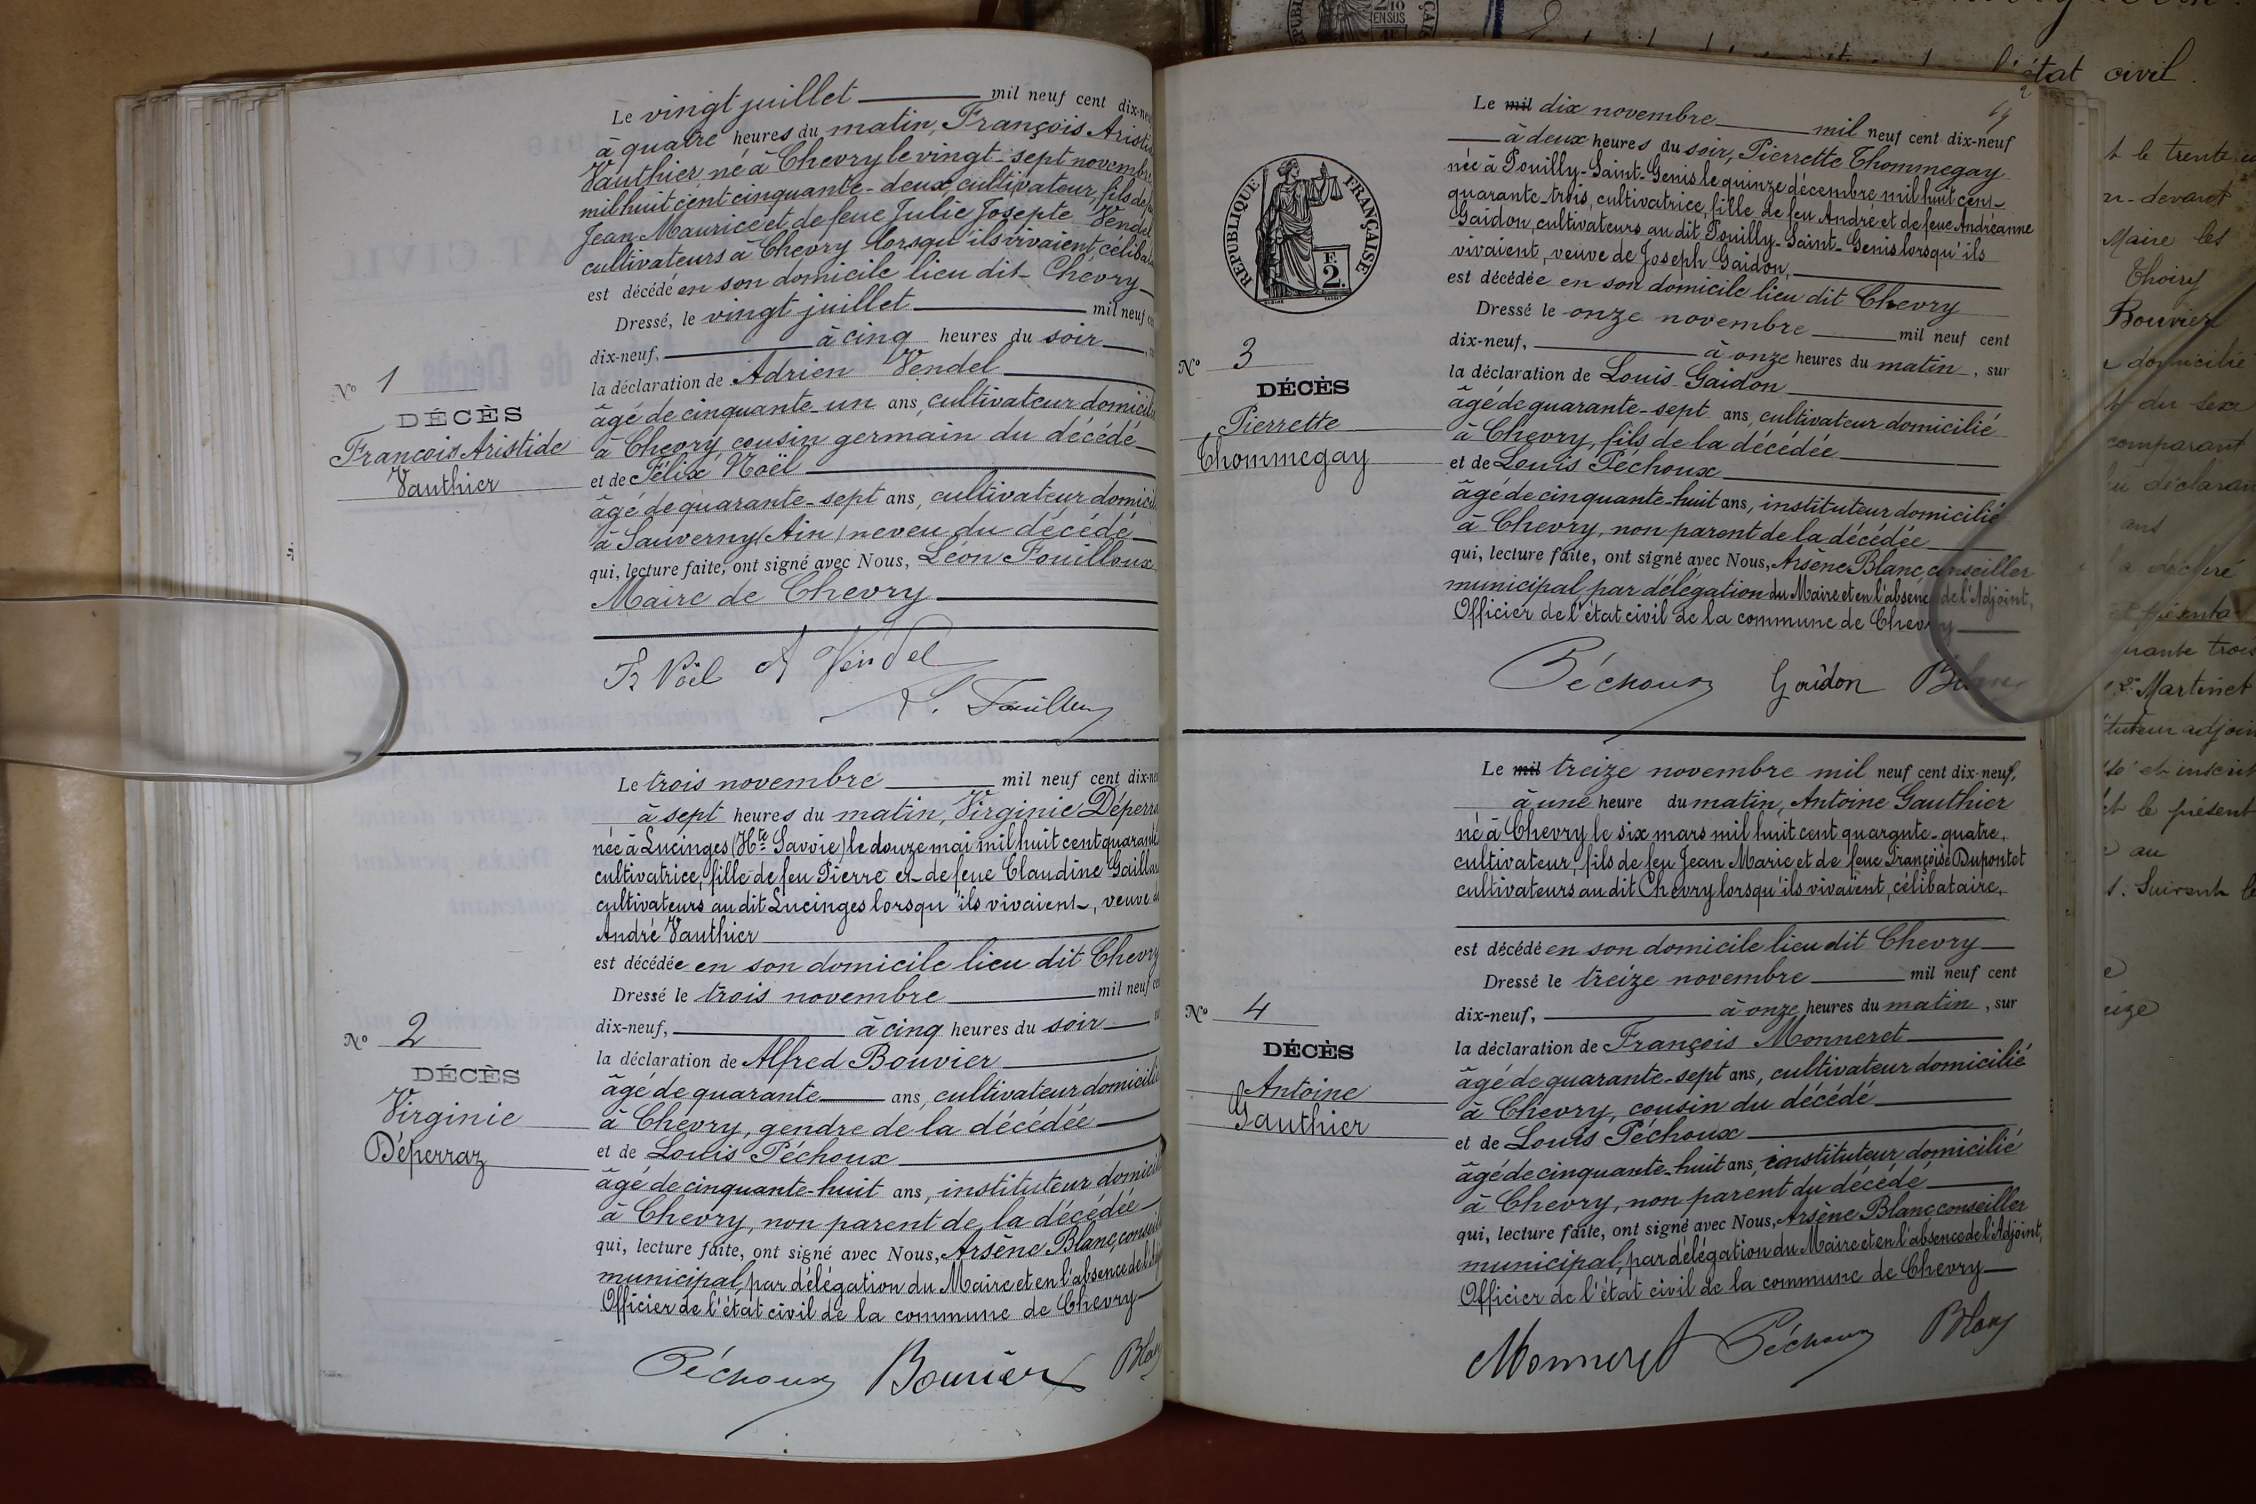 Le vingt juillet mil neuf cent dix-neuf
à quatre heures du matin, François Aristide
Vauthier, né à Chevry le vingt-sept novembre
mil huit cent cinquante-deux, cultivateur, fils de feu
Jean Maurice et de feue Julie Josepte Vendel
cultivateurs à Chevry lorsqu'ils vivaient, céliba
est décédé en son domicile lieu dit Chevry
Dressé, le vingt juillet mil neuf
dix-neuf, à cinq heures du soir
la déclaration de Adrien Vendel
N° 1
DÉCÈS
François Aristide
Vauthier
âgé de cinquante-un ans, cultivateur domicilié
à Chevry, cousin germain du décédé
et de Félix Noël
âgé de quarante-sept ans, cultivateur domici
à Sauverny (Ain) neveu du décédé
qui, lecture faite, ont signé avec Nous, Léon Fouilloux
Maire de Chevry
Fx Noël A Vendel
L. Fouilloux
Le trois novembre mil neuf cent dix-neu
à sept heures du matin, Virginie Déperra
née à Lucinges (Hte Savoie) le douze mai mil huit cent quarante
cultivatrice, fille de feu Pierre et de feue Claudine Gaillar
cultivateurs au dit Lucinges lorsqu'ils vivaient, veuve de
André Vauthier
est décédée en son domicile lieu dit Chevry
Dressé le trois novembre mil neuf ce
dix-neuf, à cinq heures du soir
N° 2
DÉCÈS
Virginie
Déperraz
la déclaration de Alfred Bouvier
âgé de quarante ans, cultivateur domicilié
à Chevry, gendre de la décédée
et de Louis Péchoux
âgé de cinquante-huit ans, instituteur domicili
à Chevry, non parent de la décédée
qui, lecture faite, ont signé avec Nous, Arsène Blanc, conseil
municipal, par délégation du Maire et en l'absence de l'Adj
Officier de l'état civil de la commune de Chevry
Péchoux Bouvier Blan
19
2
Le mil dix novembre mil neuf cent dix-neuf
à deux heures du soir, Pierrette Thommegay
née à Pouilly-Saint-Genis le quinze décembre mil huit cent
quarante-trois, cultivatrice, fille de feu André et de feue Andréanne
Gaidon, cultivateurs au dit Pouilly-Saint-Genis lorsqu'ils
vivaient, veuve de Joseph Gaidon,
est décédée en son domicile lieu dit Chevry
Dressé le onze novembre mil neuf cent
dix-neuf, à onze heures du matin, sur
la déclaration de Louis Gaidon
RÉPUBLIQUE FRANÇAISE
F.
2.
N° 3
DÉCÈS
Pierrette
Thommegay
âgé de quarante-sept ans, cultivateur domicilié
à Chevry, fils de la décédée
et de Louis Péchoux
âgé de cinquante-huit ans, instituteur domicilié
à Chevry, non parent de la décédée
qui, lecture faite, ont signé avec Nous, Arsène Blanc conseiller
municipal, par délégation du Maire et en l'absence de l'Adjoint,
Officier de l'état civil de la commune de Chevry
Péchoux Gaidon Blanc
Le mil treize novembre mil neuf cent dix-neuf,
à une heure du matin, Antoine Gauthier
né à Chevry le six mars mil huit cent quarante-quatre,
cultivateur, fils de feu Jean Marie et de feue Françoise Dupontet
cultivateurs au dit Chevry lorsqu'ils vivaient, célibataire,
est décédé en son domicile lieu dit Chevry
Dressé le treize novembre mil neuf cent
dix-neuf, à onze heures du matin, sur
N° 4
DÉCÈS
Antoine
Gauthier
la déclaration de François Monneret
âgé de quarante-sept ans, cultivateur domicilié
à Chevry, cousin du décédé
et de Louis Péchoux
âgé de cinquante-huit ans, instituteur domicilié
à Chevry, non parent du décédé
qui, lecture faite, ont signé avec Nous, Arsène Blanc conseiller
municipal, par délégation du Maire et en l'absence de l'Adjoint,
Officier de l'état civil de la commune de Chevry
Monneret Péchoux Blanc
l'état civil.
le trente
devant
Maire les
Thoiry
Bouvier
domicilié
du sexe
comparant
déclaran
ans
a déclaré
présenta
rante trois
Martinet
tuteur adjoin
et inscrit
le présent
au
1. Suivant le